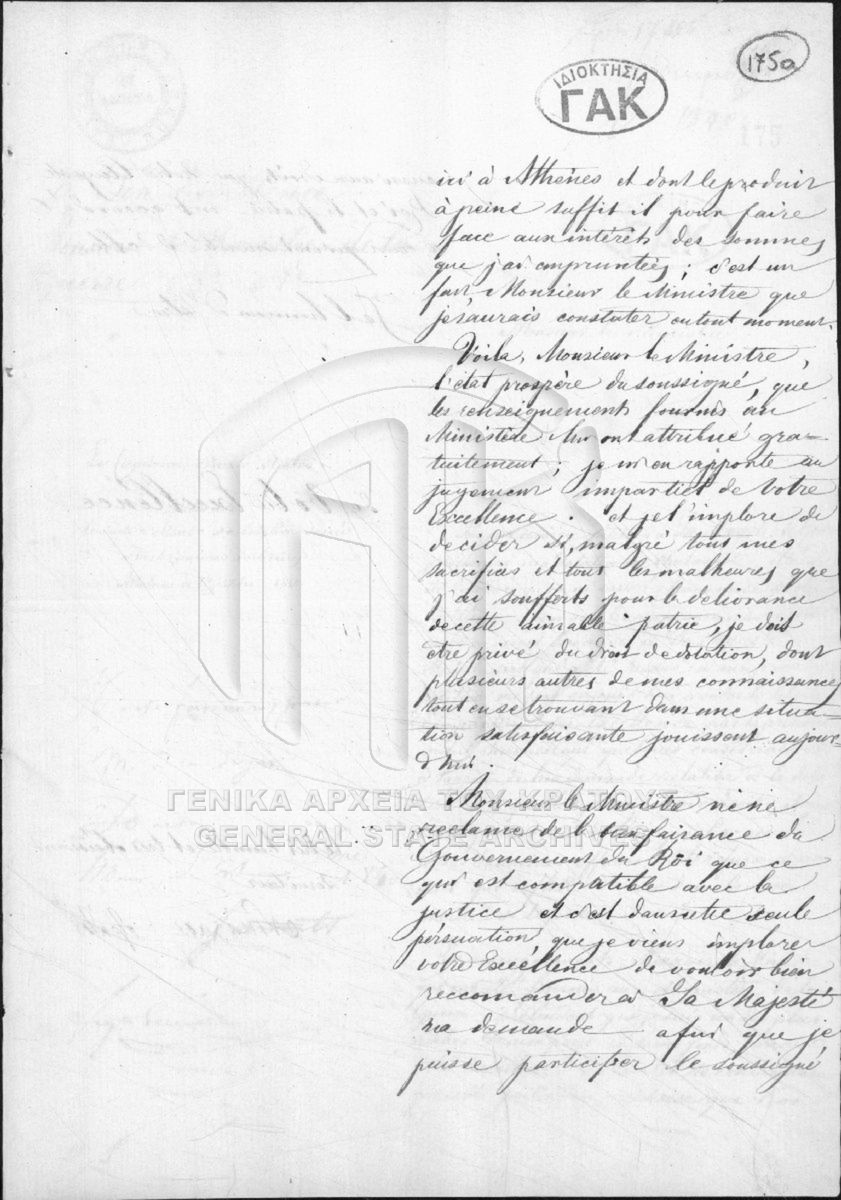 175α
ΙΔΙΟΚΤΗΣΙΑ
ΓΑΚ
175
ici à Athènes et dont le produit
à peine suffit il pour faire
face aux intérêts des sommes
que j'ai empruntées ; c'est un
fait, Monsieur le Ministre que
je saurais constater en tout moment.
Voila, Monsieur le Ministre,
l'état prospère du soussigné, que
les renseignements fournis au
Ministère lui ont attribué gra-
tuitement ; je m'en rapporte au
jugement impartiel de Votre
Excellence . et je l'implore de
decider si, malgré tout mes
sacrifices et tout les malheures que
j'ai soufferts pour la deliverance
de cette aimable patrie, je dois
etre privé du droit de dotation, dont
plusieurs autres de mes connaissances
tout en se trouvant dans une situa-
tion satisfaisante jouissent aujour-
d'hui.
Monsieur le Ministre je ne
reclame de la bienfaisance du
Gouvernement du Roi que ce
qui est compatible avec la
justice et c'est dans cette seule
persuation, que je viens implorer
votre Excellence de vouloir bien
reccomander à Sa Majesté
ma demande afin que je
puisse participer le soussigné
ΓΕΝΙΚΑ ΑΡΧΕΙΑ ΤΟΥ ΚΡΑΤΟΥΣ
GENERAL STATE ARCHIVES